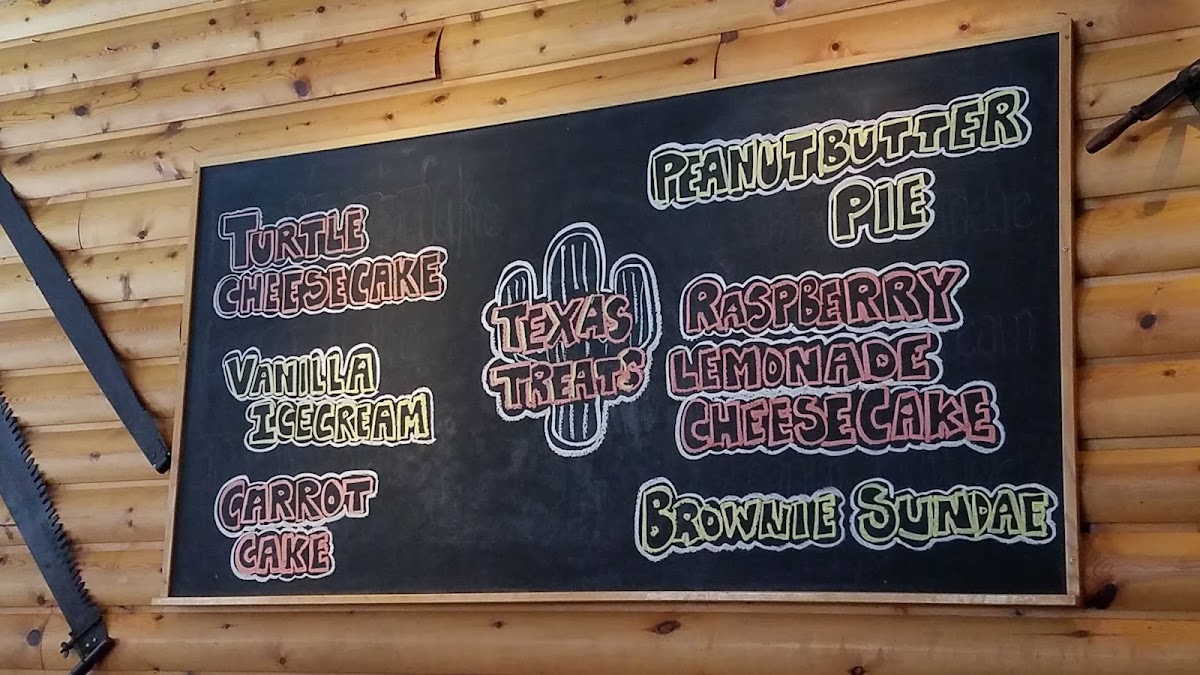 TURTLE
CHEESECAKE
VANILLA
ICECREAM
CARROT
CAKE
TEXAS
TREATS
PEANUTBUTTER
PIE
RASPBERRY
LEMONADE
CHEESECAKE
BROWNIE SUNDAE